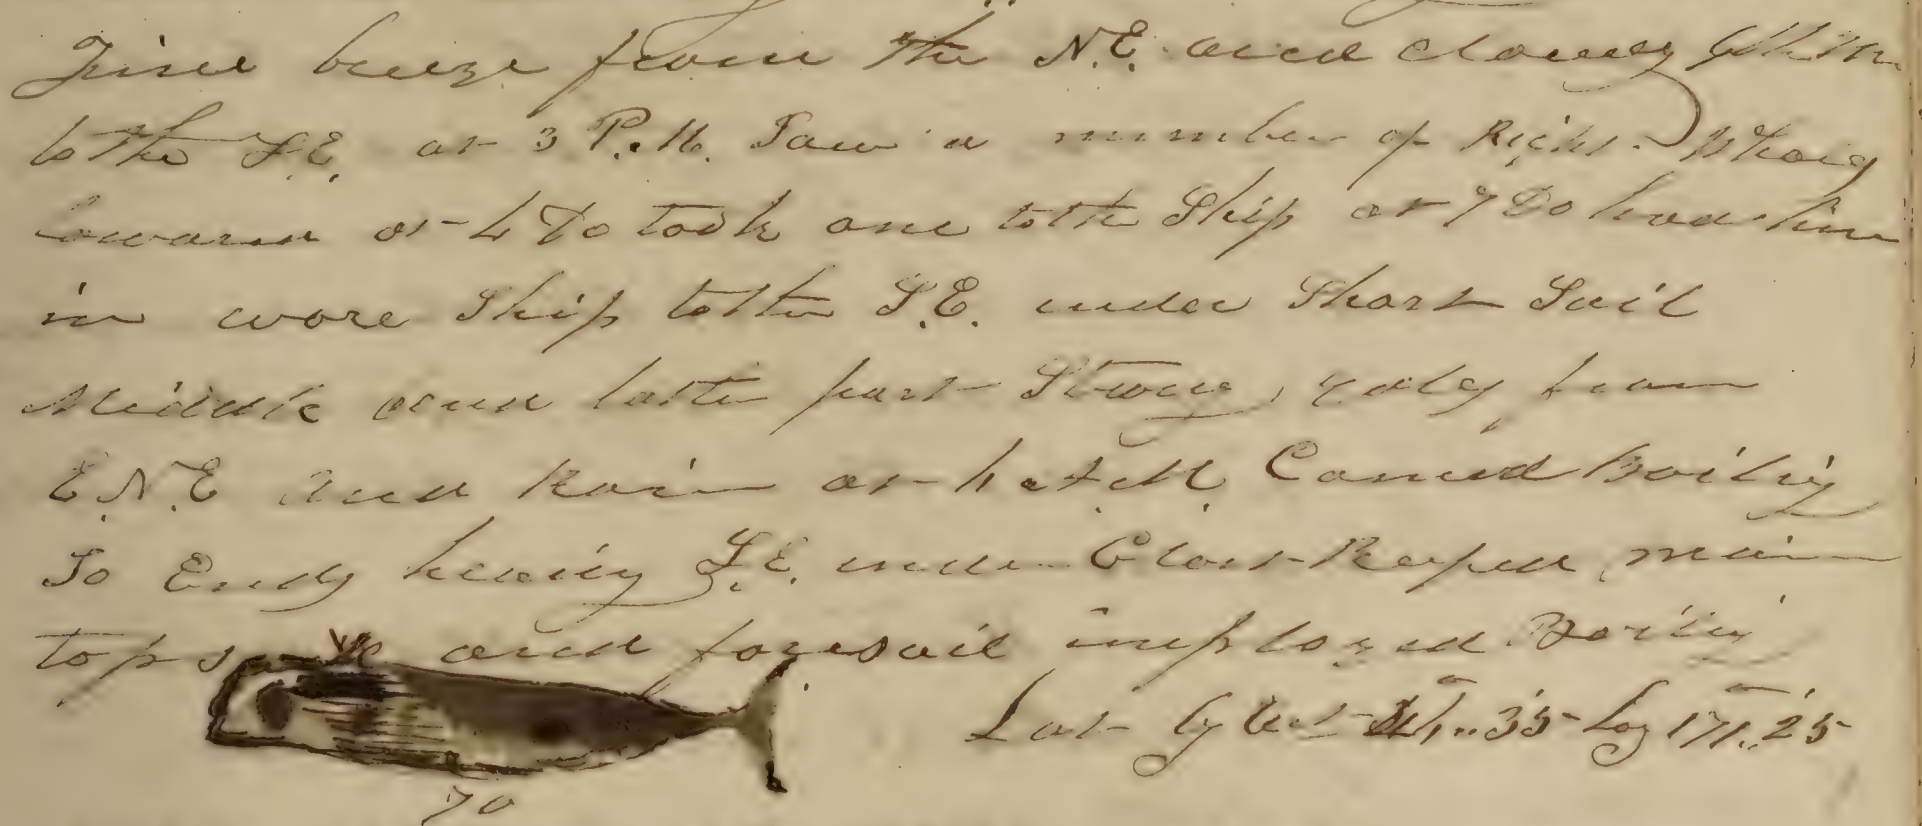 Fine breeze from the N.E. and cloudy
to the S.E. at 3 P.M. Saw a number of Right Whales
lowered at 4 Do took one to the Ship at 7 Do had him
in wore Ship to the S.E. under Short Sail
Middle and latter part Strong gales from
E.N.E and Rain at 4 A.M. Comnd Boiling
So Ends heading S.E. under Close Reefed main
topsail and foresail imployed Boiling
Lat by Obs 35 Log 171..25
70